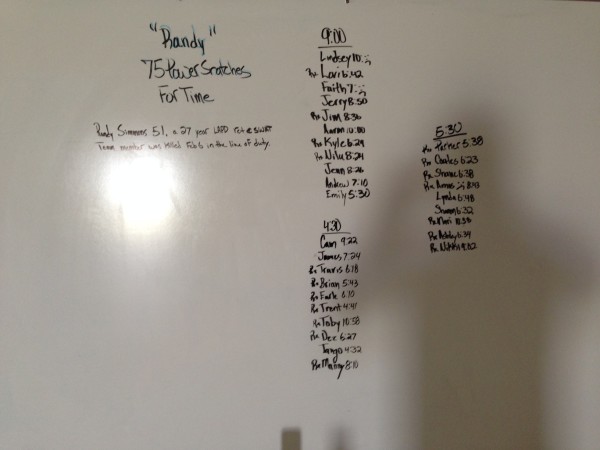 "Randy"
75 Power Snatches
For Time
Randy Simmons 51, a 27 year LAPD vet & SWAT
Team member was killed Feb 6 in the line of duty.
9:00
Lindsey 10:
Rx Lori 6:42
Faith 7:
Jerry 8:50
Rx Jim 8:36
Aaron 10:00
Rx Kyle 6:29
Rx Nilu 8:24
Jenn 8:26
Andrew 7:10
Emily 5:30
4:30
Cam 9:22
James 7:24
Rx Travis 6:18
Rx Brian 5:43
Rx 6:10
Rx Trent 4:41
Rx Toby 10:58
Rx Dez 6:27
Tango 4:32
Rx Manny 8:10
5:30
Rx Turner 5:38
Rx Charles 6:23
Rx Shane 6:38
Rx 8:43
Lynda 6:48
6:32
Rx 10:38
Rx Ashley 6:39
Rx Nikki 9:02